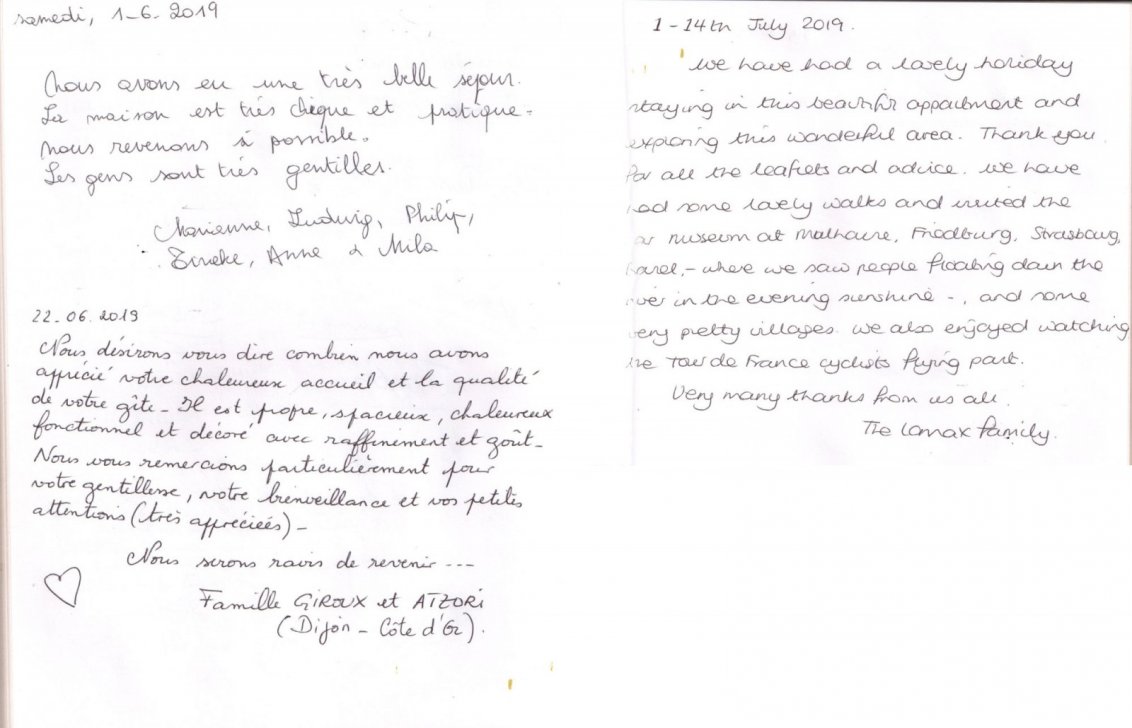 samedi, 1-6. 2019
Nous avons eu une très belle séjour.
La maison est très chèque et pratique.
Nous revenons si possible.
Les gens sont très gentilles.
Marienne, Ludwig, Philip,
Tineke, Anne & Mila
22.06.2019
Nous désirons vous dire combien nous avons
apprécié votre chaleureux accueil et la qualité
de votre gîte - Il est propre, spacieux, chaleureux
fonctionnel et décoré avec raffinement et goût -
Nous vous remercions particulièrement pour
votre gentillesse, votre bienveillance et vos petites
attentions (très appréciées) -
Nous serons ravis de revenir ---
Famille GIROUX et ATZORI
(Dijon - Côte d'Or).
1 - 14th July 2019.
We have had a lovely holiday
staying in this beautiful appartment and
exploring this wonderful area. Thank you
for all the leaflets and advice. We have
had some lovely walks and visited the
museum at Malhause, Friedburg, Strasbourg,
Basel, - where we saw people floating down the
river in the evening sunshine -, and some
very pretty villages. We also enjoyed watching
the Tour de France cyclists flying past.
Very many thanks from us all.
The Lomax family.